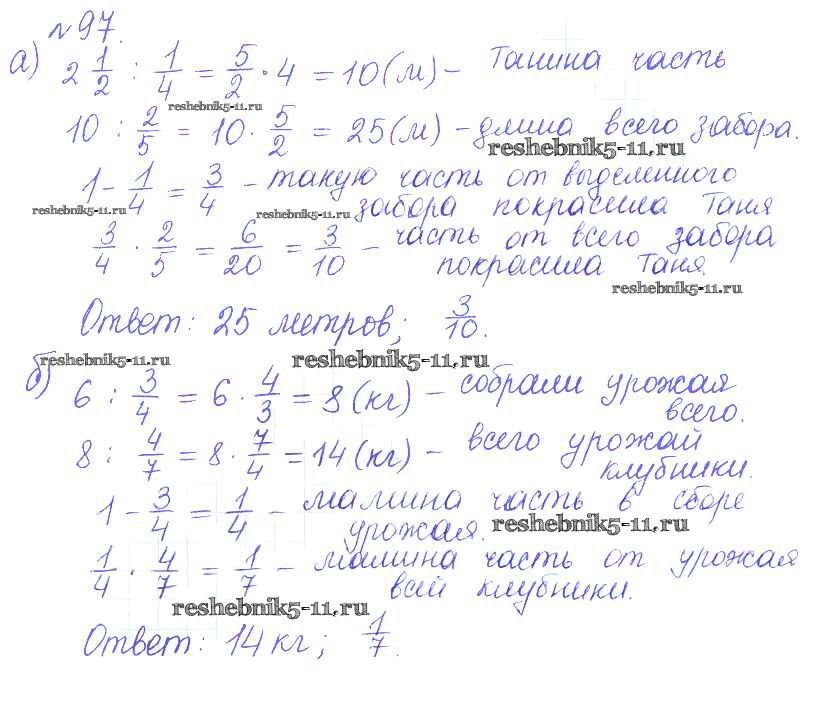 №97.
а) 2 1/2 : 1/4 = 5/2 · 4 = 10 (м) – Танина часть
reshebnik5-11.ru
10 : 2/5 = 10 · 5/2 = 25 (м) – длина всего забора.
reshebnik5-11.ru
1 - 1/4 = 3/4 – такую часть от выделенного
reshebnik5-11.ru reshebnik5-11.ru забора покрасила Таня
3/4 · 2/5 = 6/20 = 3/10 – часть от всего забора
покрасила Таня.
reshebnik5-11.ru
Ответ: 25 метров; 3/10.
reshebnik5-11.ru reshebnik5-11.ru
б) 6 : 3/4 = 6 · 4/3 = 8 (кг) – собрали урожая
всего.
8 : 4/7 = 8 · 7/4 = 14 (кг) – всего урожай
клубники.
1 - 3/4 = 1/4 – мамина часть в сборе
урожая. reshebnik5-11.ru
1/4 · 4/7 = 1/7 – мамина часть от урожая
всей клубники.
reshebnik5-11.ru
Ответ: 14 кг; 1/7.